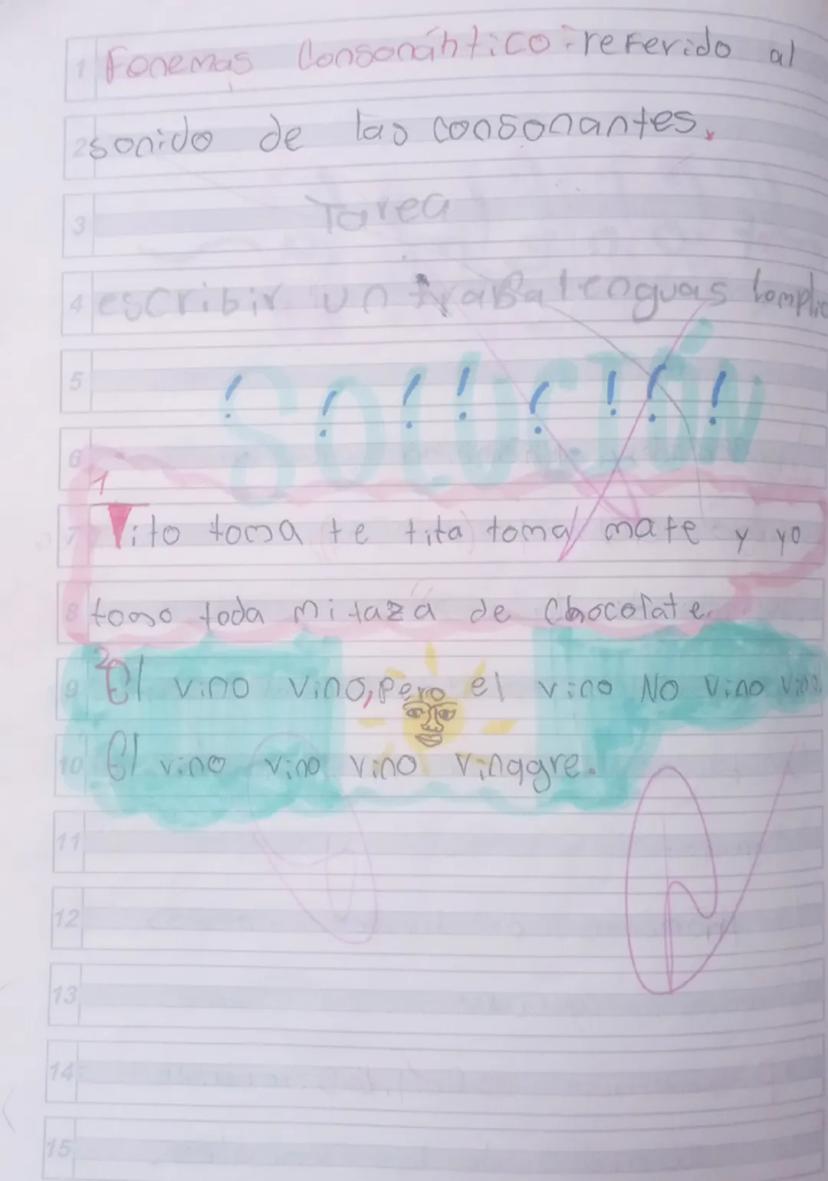 1 Fonemas Consonántico: referido al
2 sonido de las consonantes.
3 Tarea
4 escribir un trabalenguas
5 SOLUCIÓN
6
1
7 Tito toma te tita toma mate y yo
8 tomo toda mi taza de Chocolate.
2
9 El vino vino, pero el vino No vino vino
10 El vino vino vino vinagre.
11
12
13
14
15